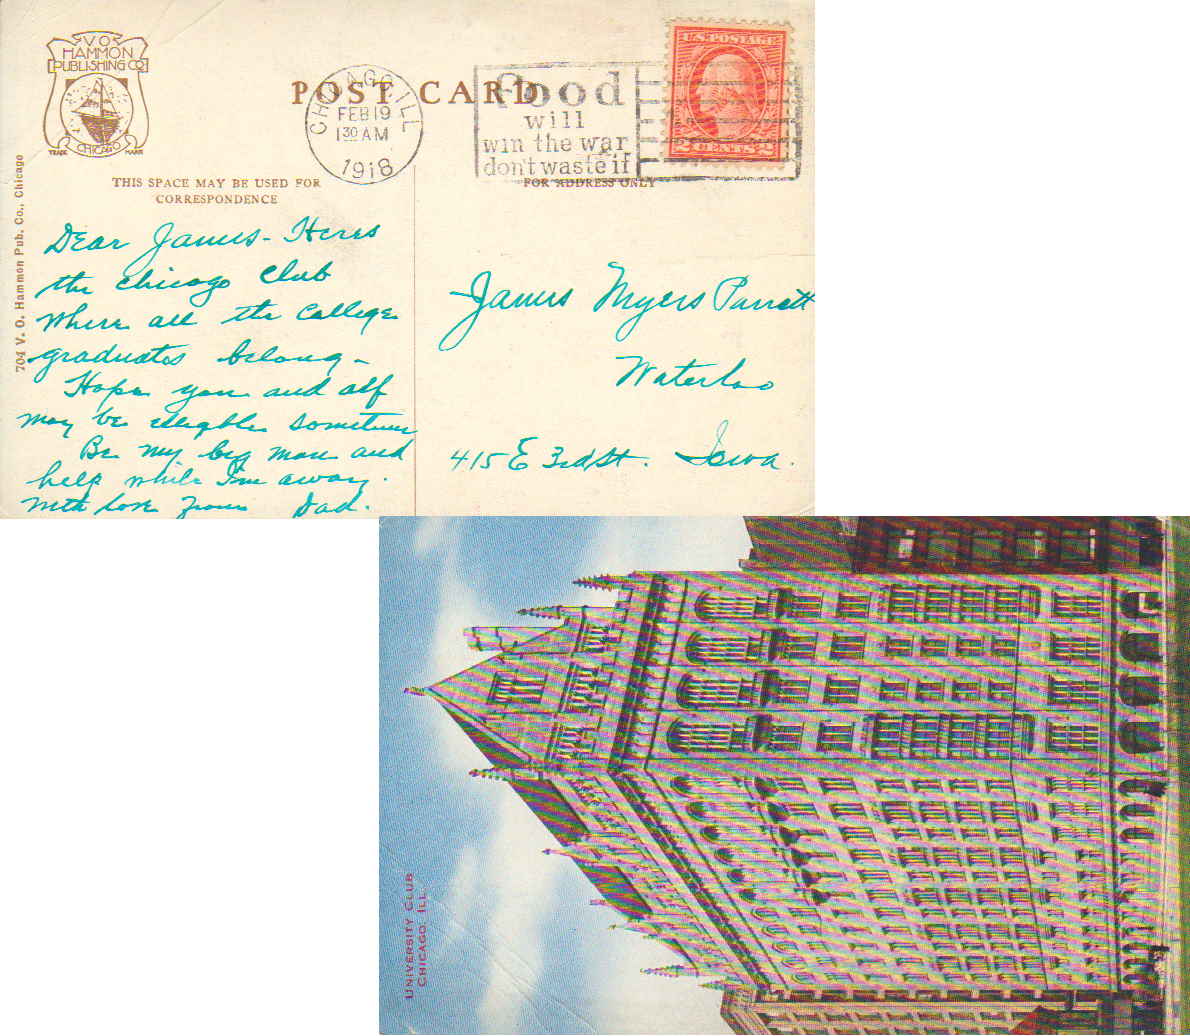 V.O.
HAMMON
PUBLISHING CO
TRADE CHICAGO MARK
POST CARD
CHICAGO, ILL
FEB 19
1 30 AM
1918
food
will
win the war
don't waste it
U.S. POSTAGE
2 CENTS 2
THIS SPACE MAY BE USED FOR
CORRESPONDENCE
FOR ADDRESS ONLY
704 V. O. Hammon Pub. Co., Chicago
Dear James - Heres
the Chicago Club
where all the College
graduates belong -
Hope you and alf
may be eligible sometime
Be my big man and
help while I'm away.
With love from Dad.
James Myers Parrott
Waterloo
415 E 3rd St. Iowa.
UNIVERSITY CLUB
CHICAGO, ILL.